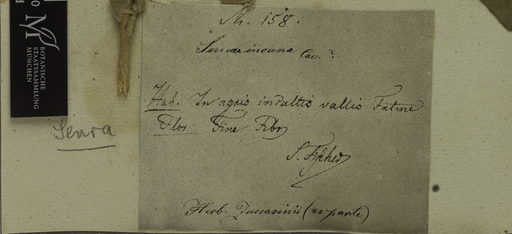 Nr. 158.
Senra incana Cav.
Hab. In agris incultis vallis Fatme
Flor. Fine Febr
S. Fischer
Herb. Zuccarinii (ex parte)
Senra
M
BOTANISCHE
STAATSSAMMLUNG
MÜNCHEN